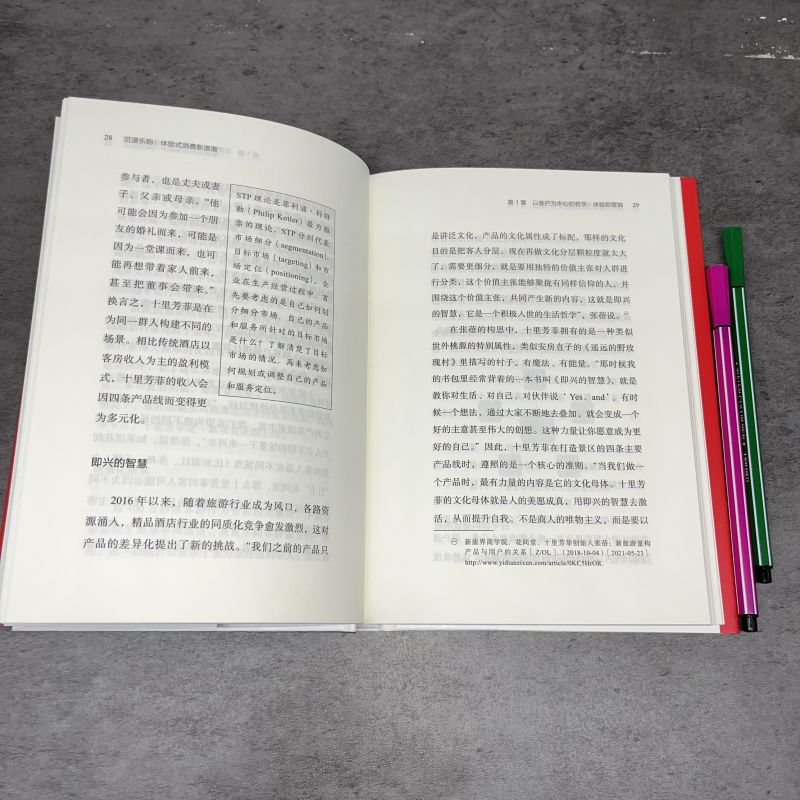 28 沉浸乐购：体验式消费新浪潮
参与者，也是丈夫或妻
子、父亲或母亲。“他
可能会因为参加一个朋
友的婚礼而来，可能是
因为一堂课而来，也可
能再想带着家人前来，
甚至把董事会带来。”
换言之，十里芳菲是在
为同一群人构建不同的
场景。相比传统酒店以
客房收入为主的盈利模
式，十里芳菲的收入会
因四条产品线而变得更
为多元化。
STP 理论是菲利浦·科特
勒（Philip Kotler）最为推
崇的理论，STP 分别代表
市场细分（segmentation）、
目标市场（targeting）和市
场定位（positioning）。企
业在生产经营过程中，首
先要考虑的是自己如何划
分细分市场，自己的产品
和服务所针对的目标市场
是什么？了解清楚了目标
市场的情况，再来考虑如
何规划或调整自己的产品
和服务定位。
即兴的智慧
2016 年以来，随着旅游行业成为风口，各路资
源涌入，精品酒店行业的同质化竞争愈发激烈，这对
产品的差异化提出了新的挑战。“我们之前的产品只
第 1 章 以客户为中心的哲学：体验即营销 29
是讲泛文化，产品的文化属性成了标配，那样的文化
目的是把客人分层。现在再做文化分层颗粒度就太大
了，需要更细分，就是要用独特的价值主张对人群进
行分类，这个价值主张能够聚拢有同样信仰的人，并
围绕这个价值主张，共同产生新的内容，这就是即兴
的智慧，它是一个积极人世的生活哲学”，张蓓说。
在张蓓的构思中，十里芳菲拥有的是一种类似
世外桃源的特别属性，类似安房直子的《遥远的野玫
瑰村》里描写的村子，有魔法、有能量。“那时候我
的书包里经常背着的一本书叫《即兴的智慧》，就是
教你对生活、对自己、对伙伴说‘Yes，and’，有时
候一个想法，通过大家不断地去叠加，就会变成一个
好的主意甚至伟大的创想。这种力量让你愿意成为更
好的自己。”因此，十里芳菲在打造景区的四条主要
产品线时，遵照的是一个核心的准则。“当我们做一
个产品时，最有力量的内容是它的文化母体。十里芳
菲的文化母体就是人的美愿成真，用即兴的智慧去激
活，从而提升自我。不是商人的唯物主义，而是要以
㊀ 新旅界商学院. 花间堂、十里芳菲创始人张蓓：新旅游重构
产品与用户的关系［Z/OL］.（2018-10-04）［2021-05-23］.
http://www.yidianzixun.com/article/0KC5HrOR.